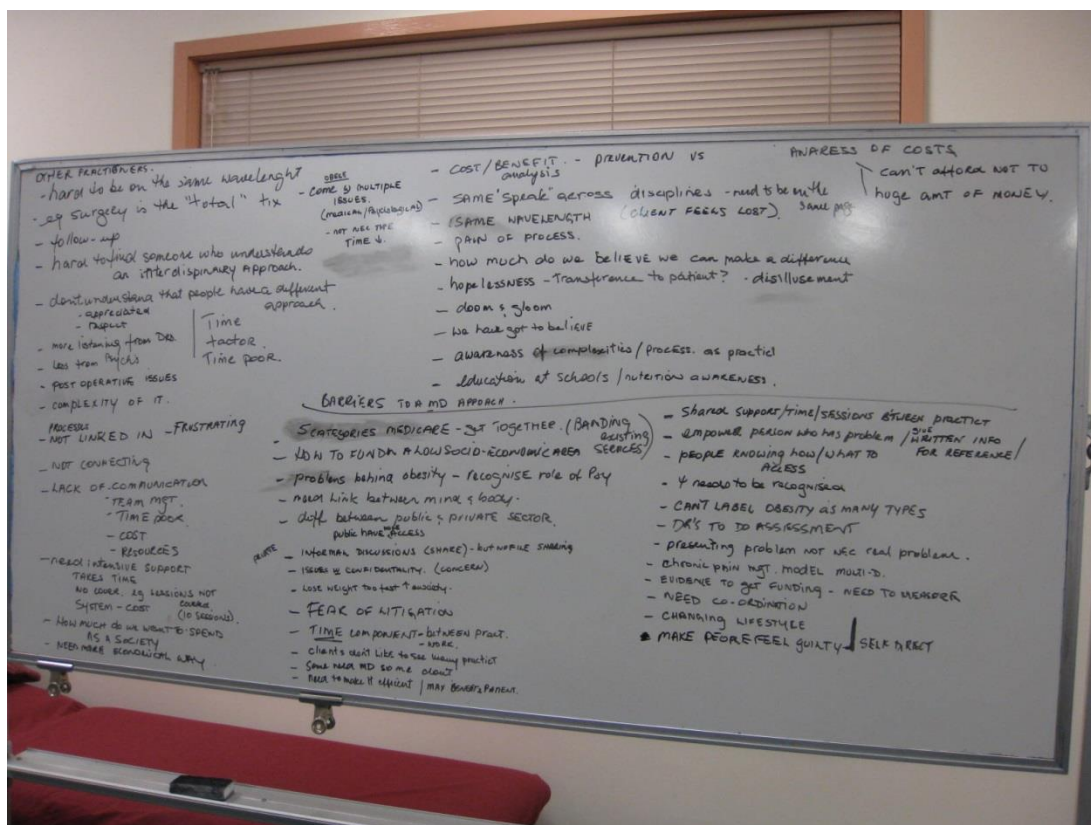 OTHER PRACTIONERS.
- hard to be on the same wavelenght
- eg surgery is the "total" fix
- follow-up
- hard to find someone who understands
an interdispinary approach.
- don't understand that people have a different
approach.
- appreciated
- respect
- more listening from Drs.
- less from Psychs
- POST OPERATIVE ISSUES
- COMPLEXITY OF IT.
Time
factor.
Time poor.
PROCESSES
- NOT LINKED IN - FRUSTRATING
- NOT CONNECTING
- LACK OF COMMUNICATION
- TEAM MGT.
- TIME POOR
- COST
- RESOURCES
- need INTENSIVE SUPPORT
TAKES TIME
NO COVER. eg SESSIONS NOT
covered
SYSTEM - COST (10 SESSIONS)
- HOW MUCH DO WE WANT TO SPEND
AS A SOCIETY
- NEED MORE ECONOMICAL WAY
OBESE
- COME MULTIPLE
ISSUES.
(medical/Psychological)
- NOT NEC
TIME ↓.
- COST/BENEFIT - PREVENTION VS
analysis
- SAME "speak" across disciplines - need to be on the
same page
- SAME WAVELENGTH (CLIENT FEELS LOST).
- PAIN OF PROCESS.
- how much do we believe we can make a difference
- hopelessness - Transference to patient? - disillusement
- doom & gloom
- We have got to believe
- awareness of complexities / process. as practict
- education at schools / nutrition awareness.
ANARESS OF COSTS
can't afford NOT TO
huge amt OF MONEY.
BARRIERS TO A MD APPOACH.
5 CATEGORIES MEDICARE - get together. (BANDING
existing
SERVICES)
- HOW TO FUND A LOW SOCIO-ECONOMIC AREA
- problems behind obesity - recognise role of Psy
- need Link between mind & body.
- diff between public & PRIVATE SECTOR.
public HAVE more ACCESS
PRIVATE - INFORMAL DISCUSSIONS (SHARE) - but NO FILE SHARING
- ISSUES CONFIDENTUALITY. (CONCERN)
- LOSE WEIGHT too fast ↑ anxiety.
- FEAR OF LITIGATION
- TIME COMPONENT - between pract.
- MORE.
- clients don't like to see many practict
- Some need MD some dont
- Need to make it efficient / MAY BENEFIT PATIENT.
- Shared support/time/sessions BTWEEN PRACTICT
- empower person who has problem / give WRITTEN INFO
FOR REFERENCE /
- people knowing how/what to
ACCESS
- Ψ needs to be recognised
- CAN'T LABEL OBESITY as MANY TYPES
- DR'S TO DO ASSESSMENT
- presenting problem not NEC real problem.
- chronic pain mgt. MODEL MULTI-D.
- EVIDENCE to get FUNDING - NEED TO MEASURE
- NEED CO-ORDINATION
- CHANGING LIFESTYLE
- MAKE PEOPLE FEEL guilty SELF DIRECT